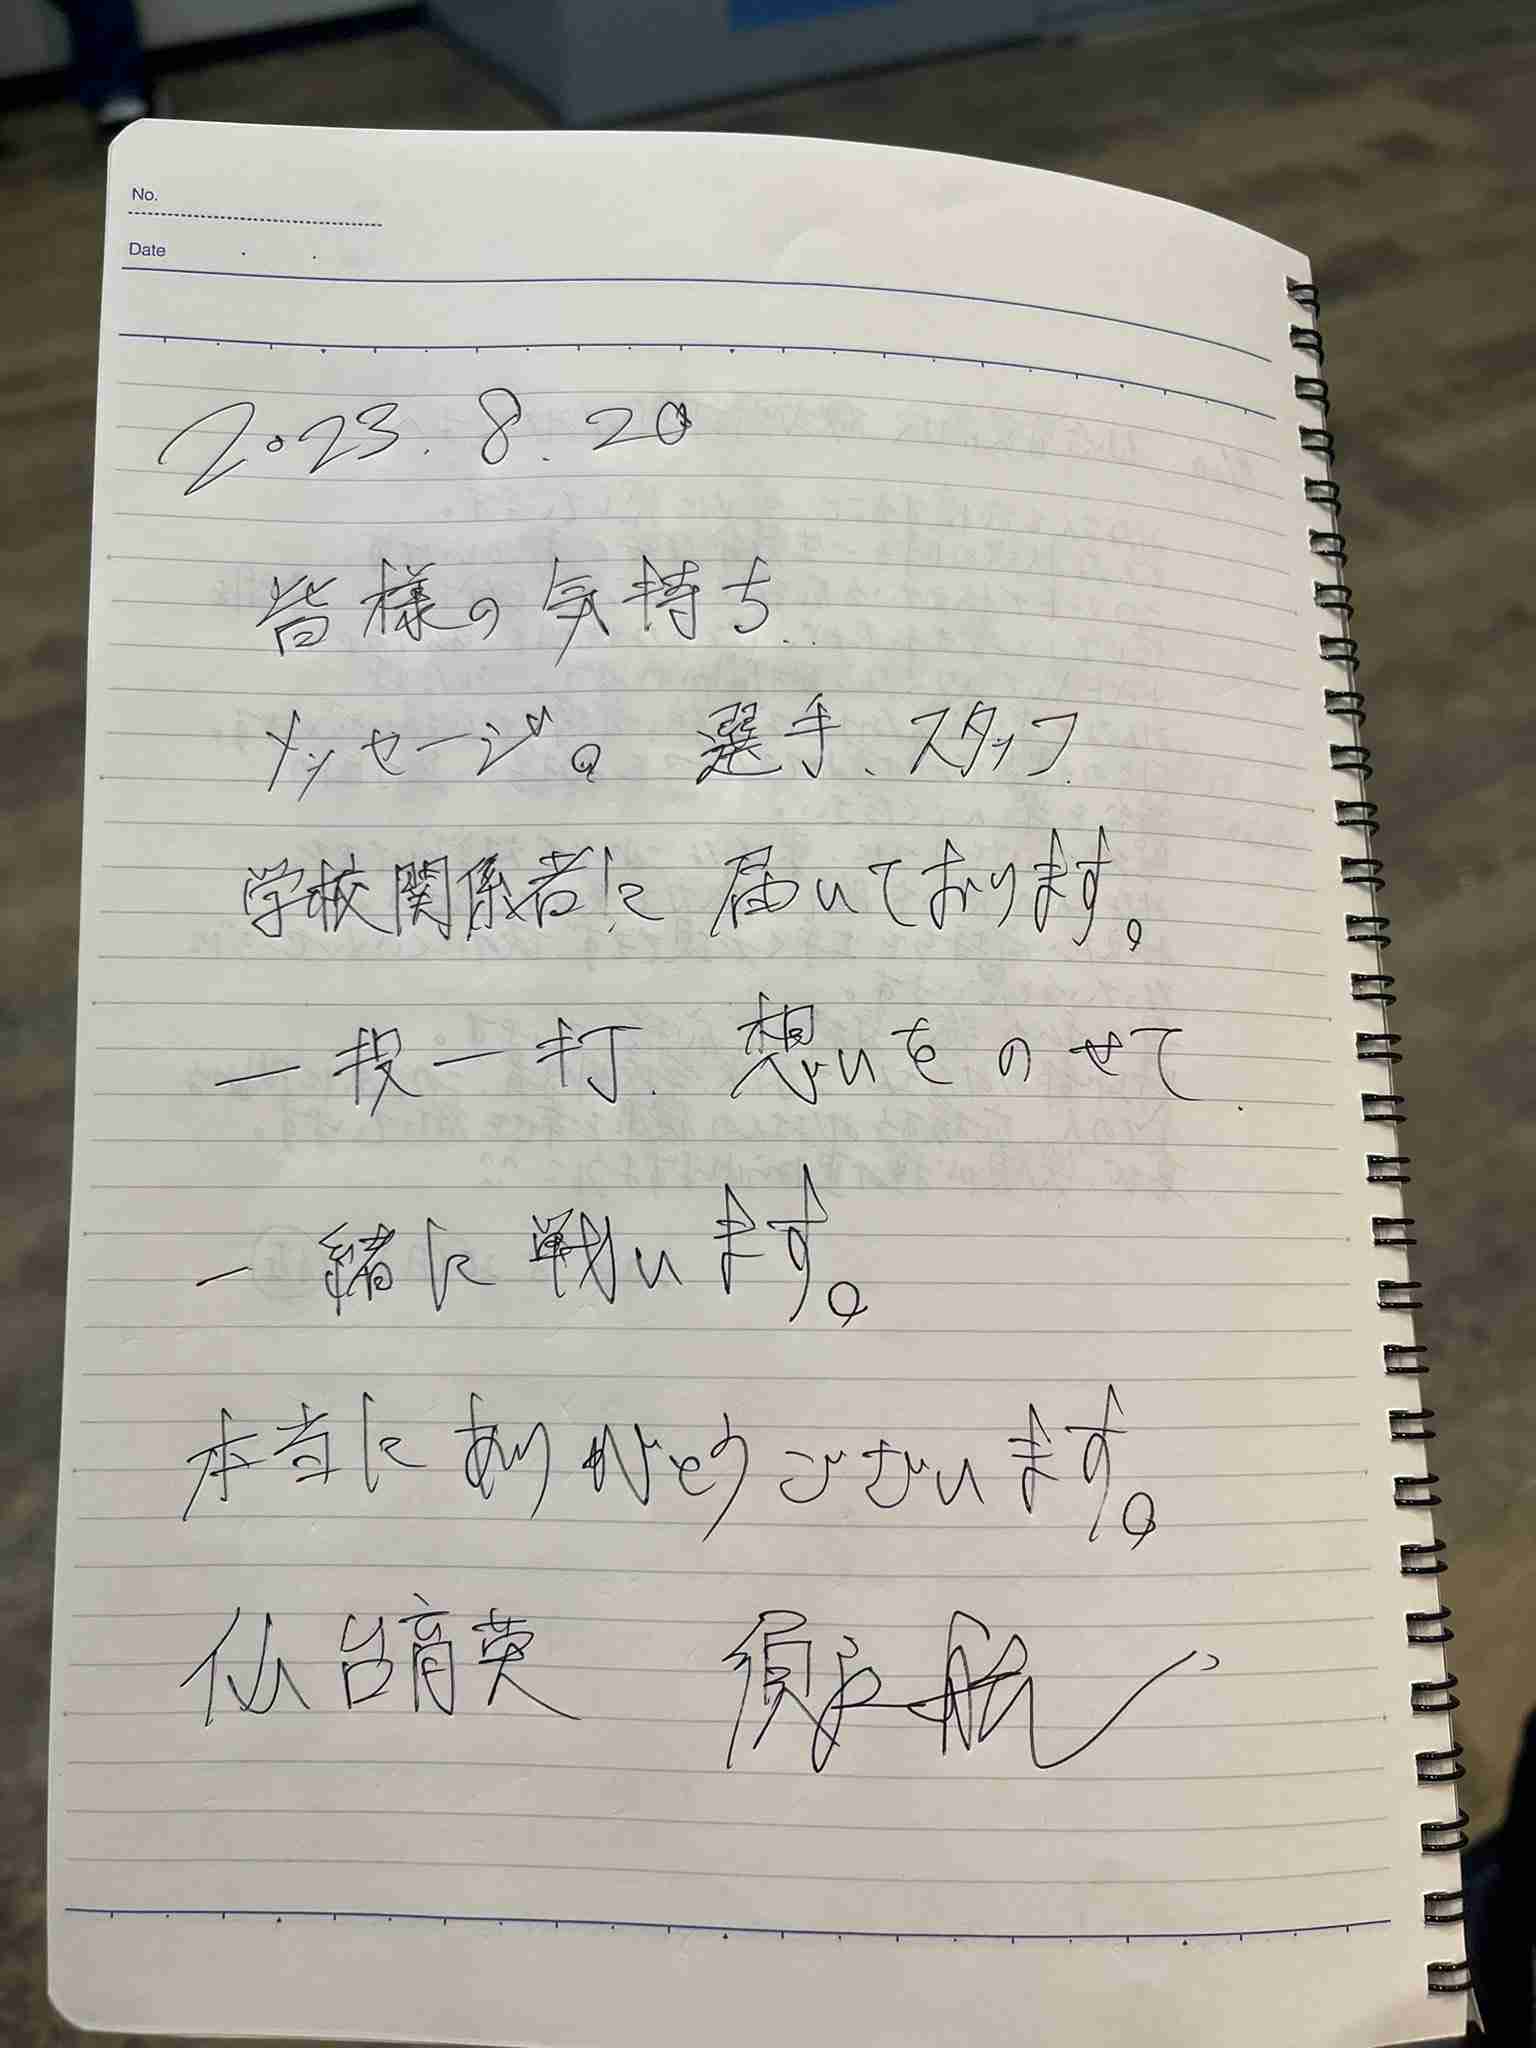 No.
Date
2023.8.20
皆様の気持ち、
メッセージ。選手、スタッフ、
学校関係者に届いております。
一投一打、想いをのせて、
一緒に戦います。
本当にありがとうございます。
仙台育英 須江航